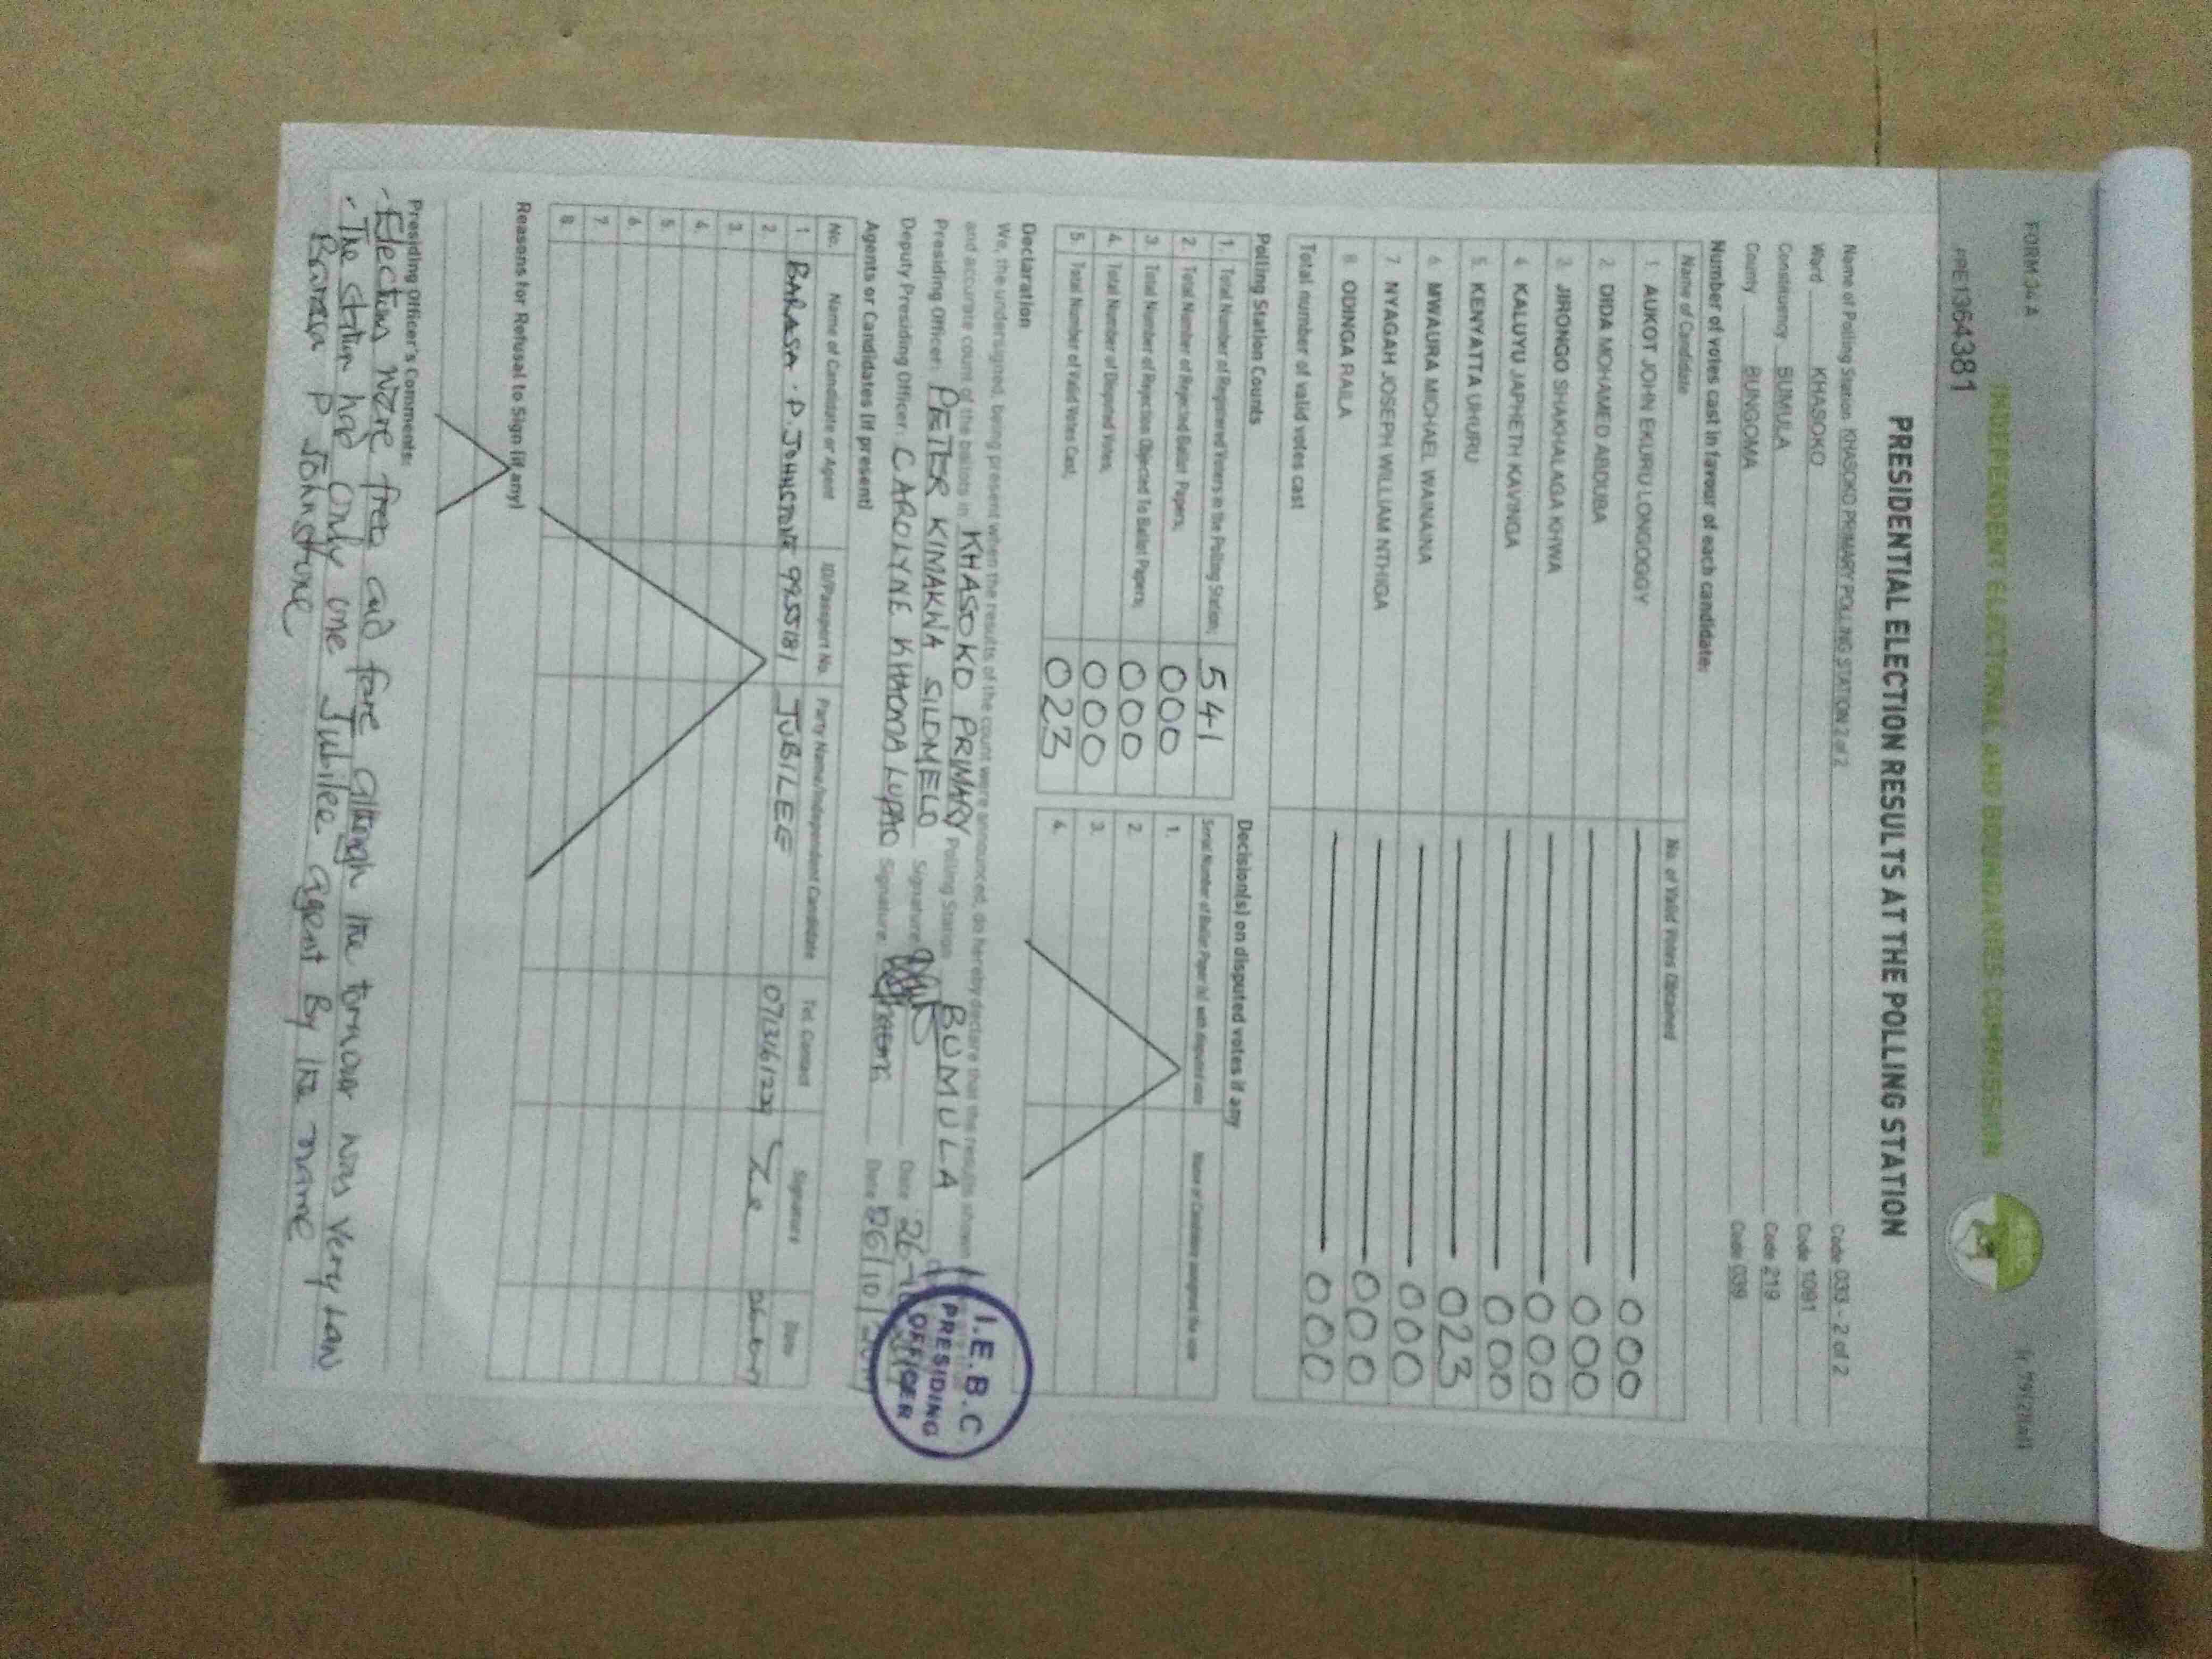 FORM 34 A
INDEPENDENT ELECTORAL AND BOUNDARIES COMMISSION
PRE1364381
PRESIDENTIAL ELECTION RESULTS AT THE POLLING STATION
Name of Polling Station KHASOKO PRIMARY POLLING STATION 2 of 2 Code 033 - 2 of 2
Ward KHASOKO Code 1091
Constituency BUMULA Code 219
County BUNGOMA Code 039
Number of votes cast in favour of each candidate:
Name of Candidate No. of Valid Votes Obtained
1. AUKOT JOHN EKURU LONGOGGY 000
2. DIDA MOHAMED ABDUBA 000
3. JIRONGO SHAKHALAGA KHWA 000
4. KALUYU JAPHETH KAVINGA 000
5. KENYATTA UHURU 023
6. MWAURA MICHAEL WAINAINA 000
7. NYAGAH JOSEPH WILLIAM NTHIGA 000
8. ODINGA RAILA 000
Total number of valid votes cast
Polling Station Counts
1. Total Number of Registered Voters in the Polling Station; 541
2. Total Number of Rejected Ballot Papers; 000
3. Total Number of Rejection Objected To Ballot Papers; 000
4. Total Number of Disputed Votes; 000
5. Total Number of Valid Votes Cast; 023
Decision(s) on disputed votes if any
Serial Number of Ballot Paper (s) with disputed vote Name of Candidate assigned the vote
1.
2.
3.
4.
Declaration
We, the undersigned, being present when the results of the count were announced, do hereby declare that the results shown
and accurate count of the ballots in KHASOKO PRIMARY Polling Station BUMULA
Presiding Officer: PETER KIMAKWA SILDMELO Signature Date 26
Deputy Presiding Officer: CAROLYNE Signature Date 26/10/
I.E.B.C
PRESIDING
OFFICER
Agents or Candidates (if present)
No. Name of Candidate or Agent ID/Passport No. Party Name/Independent Candidate Tel. Contact Signature Date
1 BARASA . P. JOHNSTONE 9955181 JUBILEE
2.
3.
4.
5.
6.
7.
8.
Reasons for Refusal to Sign (if any)
Presiding Officer's Comments:
- Elections were free and fare although the tornover was very law
- The station had only one Jubilee agent By the name
Barasa P Johnstone